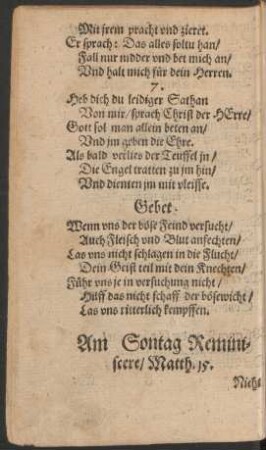 Mit jrem pracht vnd zieret.
Er sprach: Das alles soltu han/
Fall nur nidder vnd bet mich an/
Vnd halt mich für dein Herren.
7.
Heb dich du leidiger Sathan
Von mir/ sprach Christ der HErre/
Gott sol man allein beten an/
Vnd jm geben die Ehre.
Als bald verlies der Teuffel jn/
Die Engel tratten zu jm hin/
Vnd dienten jm mit vleisse.
Gebet.
Wenn vns der böse Feind versucht/
Auch Fleisch vnd Blut anfechten/
Las vns nicht schlagen in die Flucht/
Dein Geist teil mit dein Knechten/
Führ vns je in versuchung nicht/
Hilff das nicht schaff der bösewicht/
Las vns ritterlich kempffen.
Am Sontag Remini-
scere/ Matth. 15.
Nicht